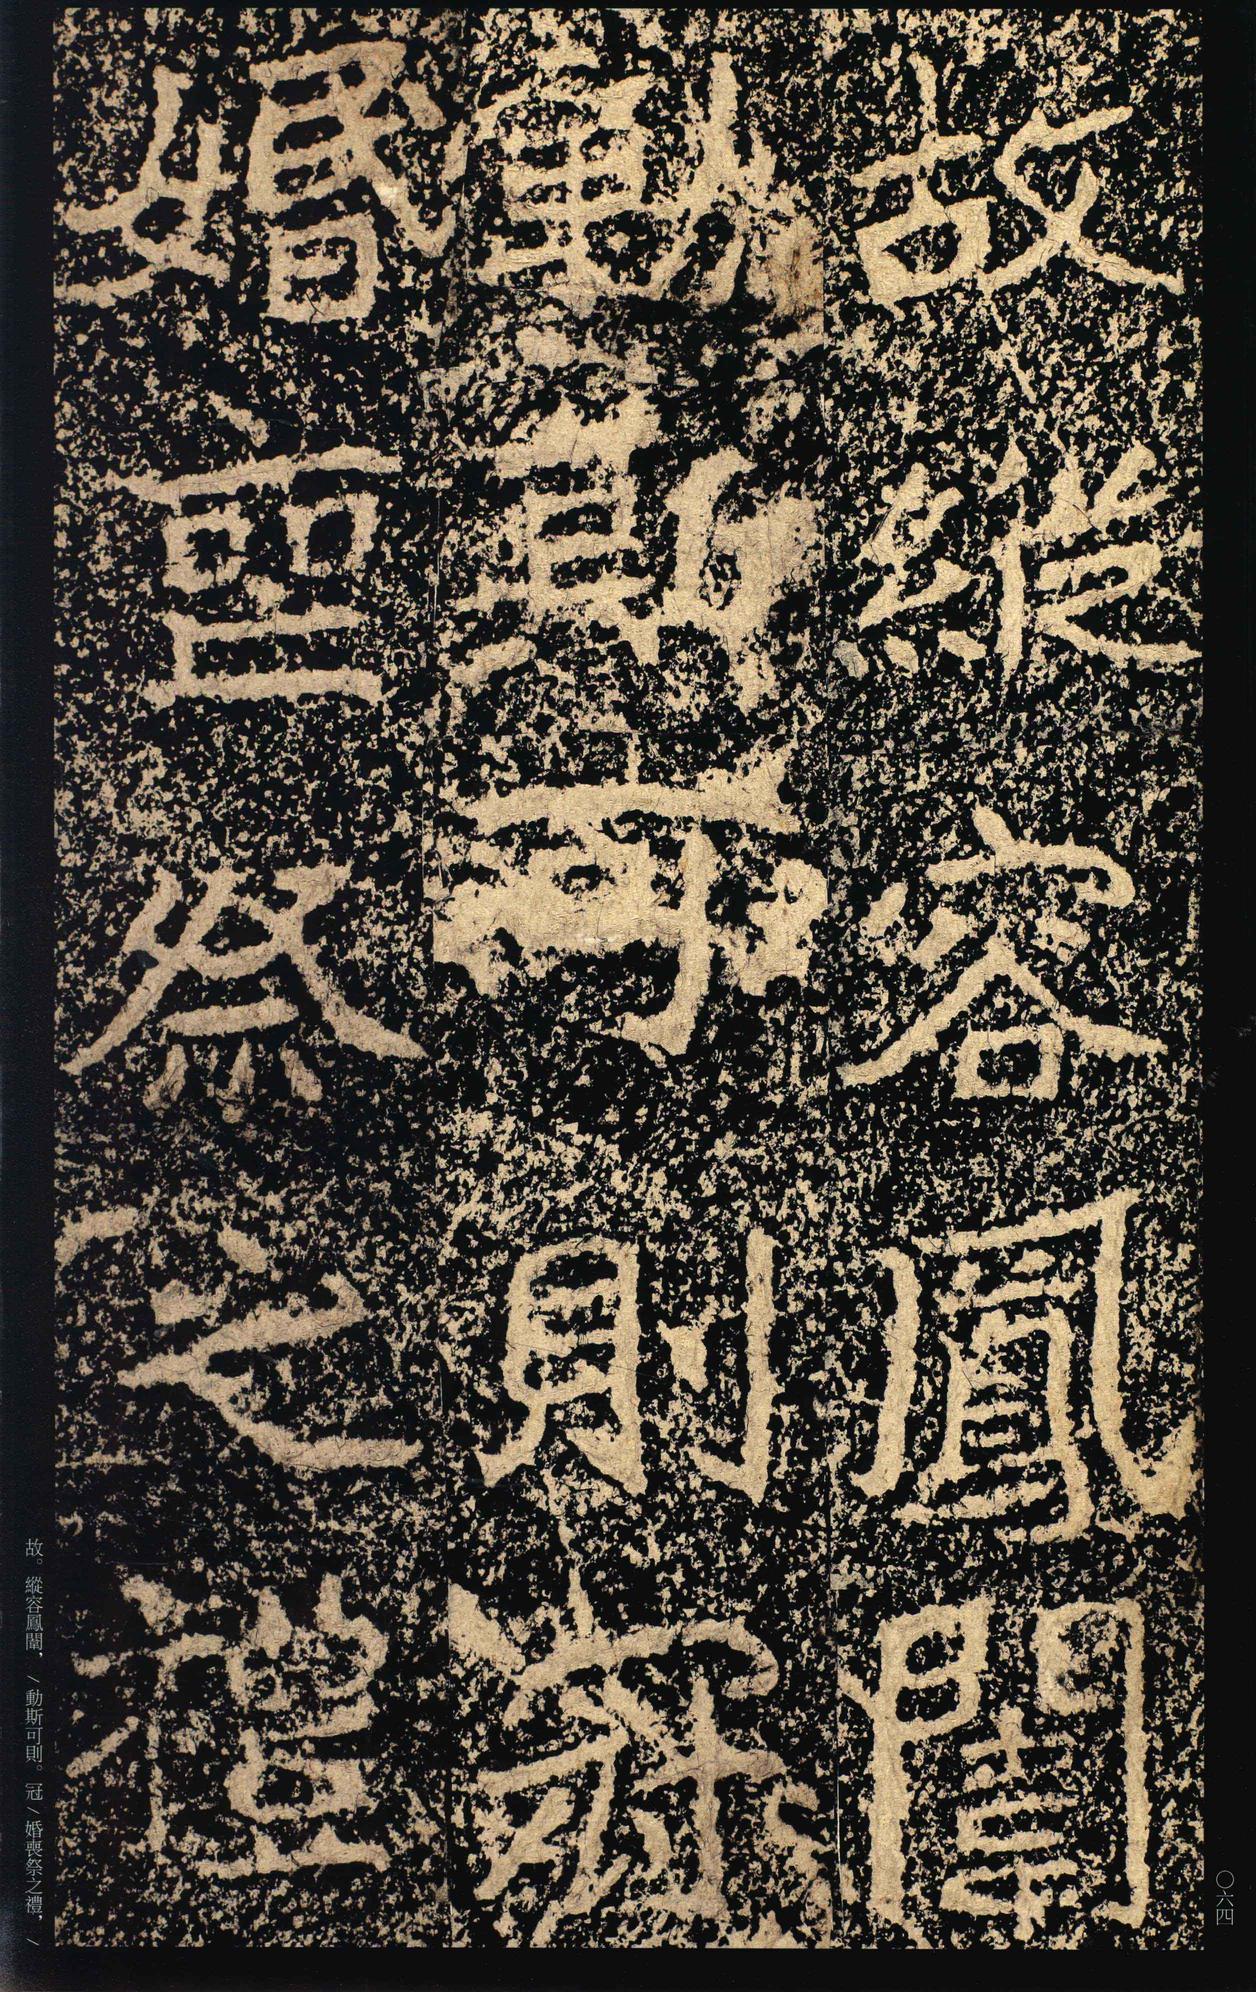 故縱容鳳闈
動斯可則冠
婚喪祭之禮
故。縱容鳳闈，/動斯可則。冠/婚喪祭之禮，/
〇六四